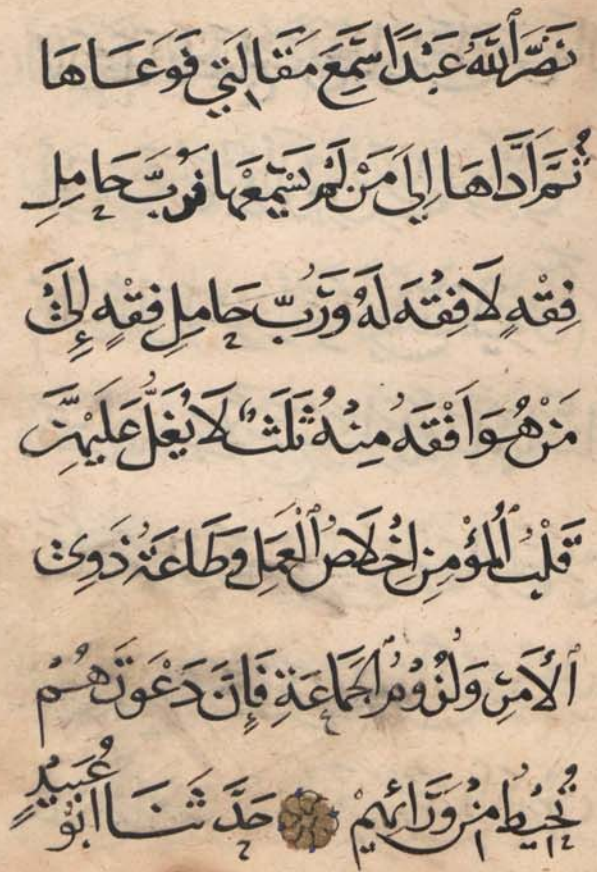 نَضَّرَ ٱللَّهُ عَبْدًا سَمِعَ مَقَالَتِي فَوَعَاهَا
ثُمَّ أَدَّاهَا إِلَى مَنْ لَمْ يَسْمَعْهَا فَرُبَّ حَامِلِ
فِقْهٍ لَا فِقْهَ لَهُ وَرُبَّ حَامِلِ فِقْهٍ إِلَى
مَنْ هُوَ أَفْقَهُ مِنْهُ ثَلَثٌ لَا يَغُلُّ عَلَيْهِنَّ
قَلْبُ ٱلْمُؤْمِنِ إِخْلَاصُ ٱلْعَمَلِ وَطَاعَةُ ذَوِي
ٱلْأَمْرِ وَلُزُومُ ٱلْجَمَاعَةِ فَإِنَّ دَعْوَتَهُمْ
تُحِيطُ مِنْ وَرَائِهِمْ حَدَّثَنَا أَبُو عُبَيْدٍ